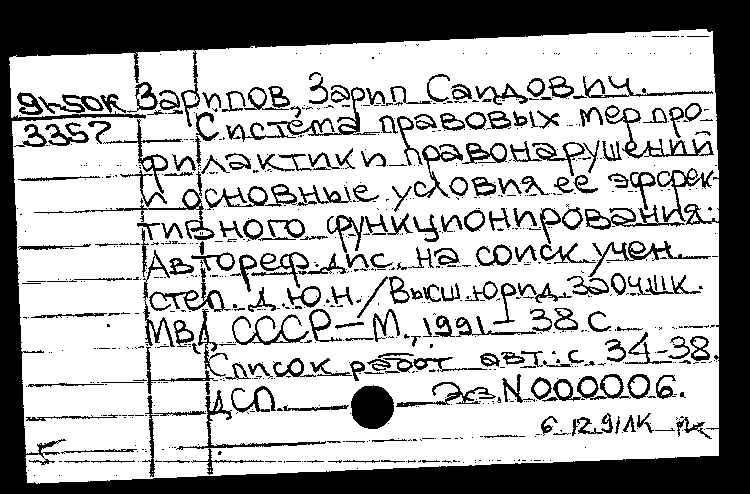 91-50к Зарипов, Зарип Саидович.
3357 Система правовых мер про-
филактики правонарушений
и основные условия ее эффек-
тивного функционирования:
Автореф. дис. на соиск. учен.
степ. д.ю.н. / Высш. юрид. заоч. шк.
МВД СССР. – М., 1991. – 38 с.
Список работ авт.: с. 34-38.
ДСП. Экз. N 000006.
6.12.91